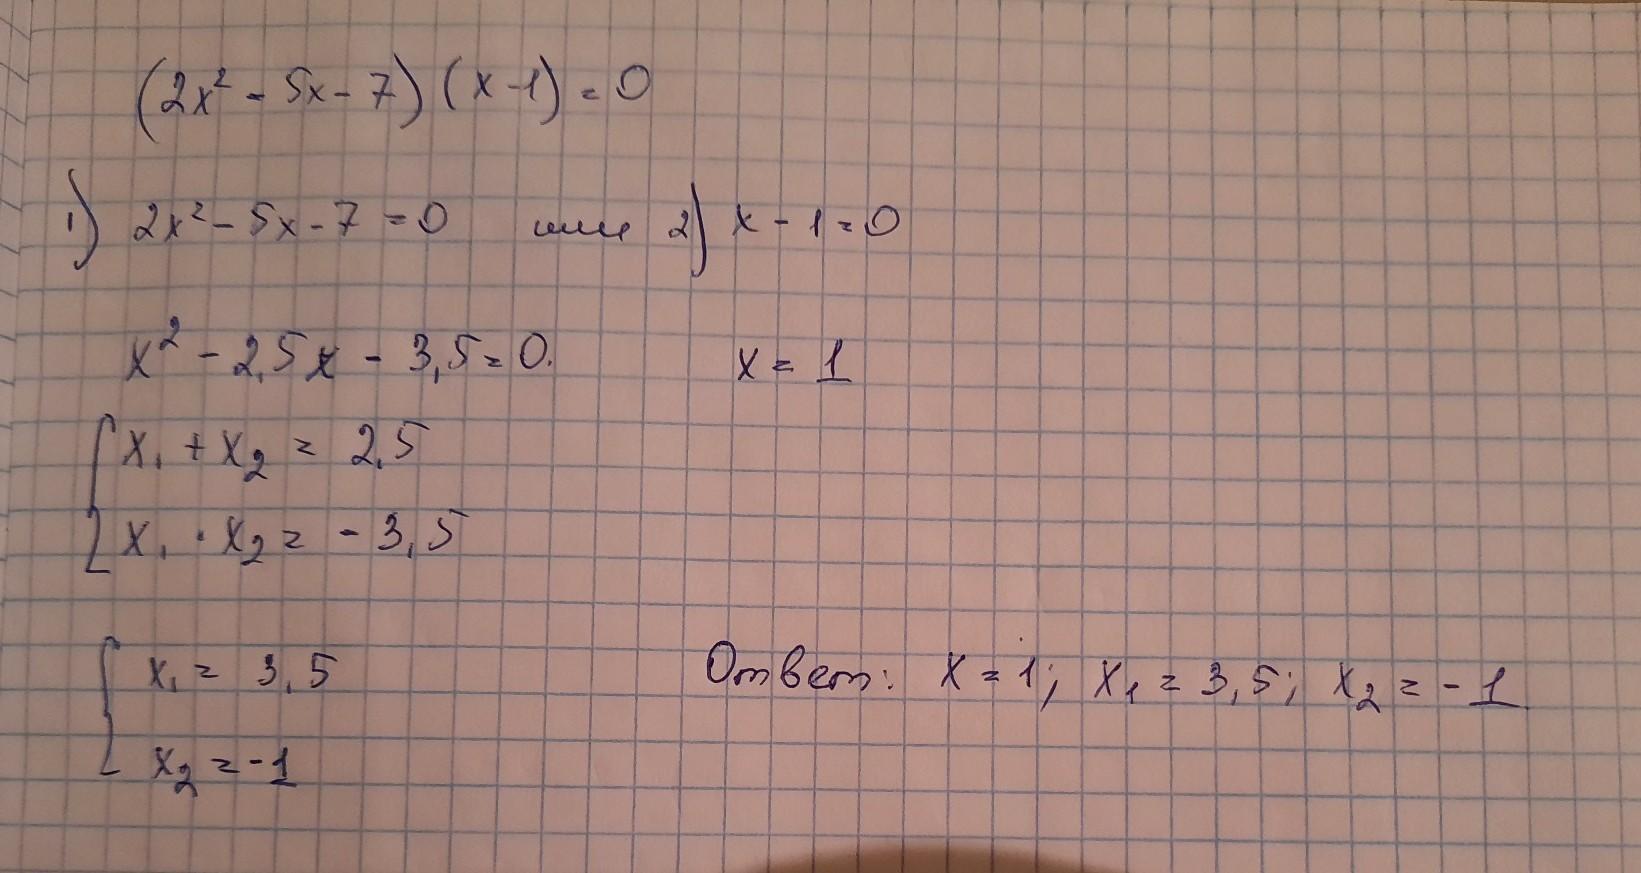 (2x² - 5x - 7) (x - 1) = 0
1) 2x² - 5x - 7 = 0 или 2) x - 1 = 0
x² - 2,5x - 3,5 = 0. x = 1
{ x₁ + x₂ = 2,5
x₁ · x₂ = - 3,5
{ x₁ = 3,5
x₂ = -1
Ответ: x = 1; x₁ = 3,5; x₂ = - 1